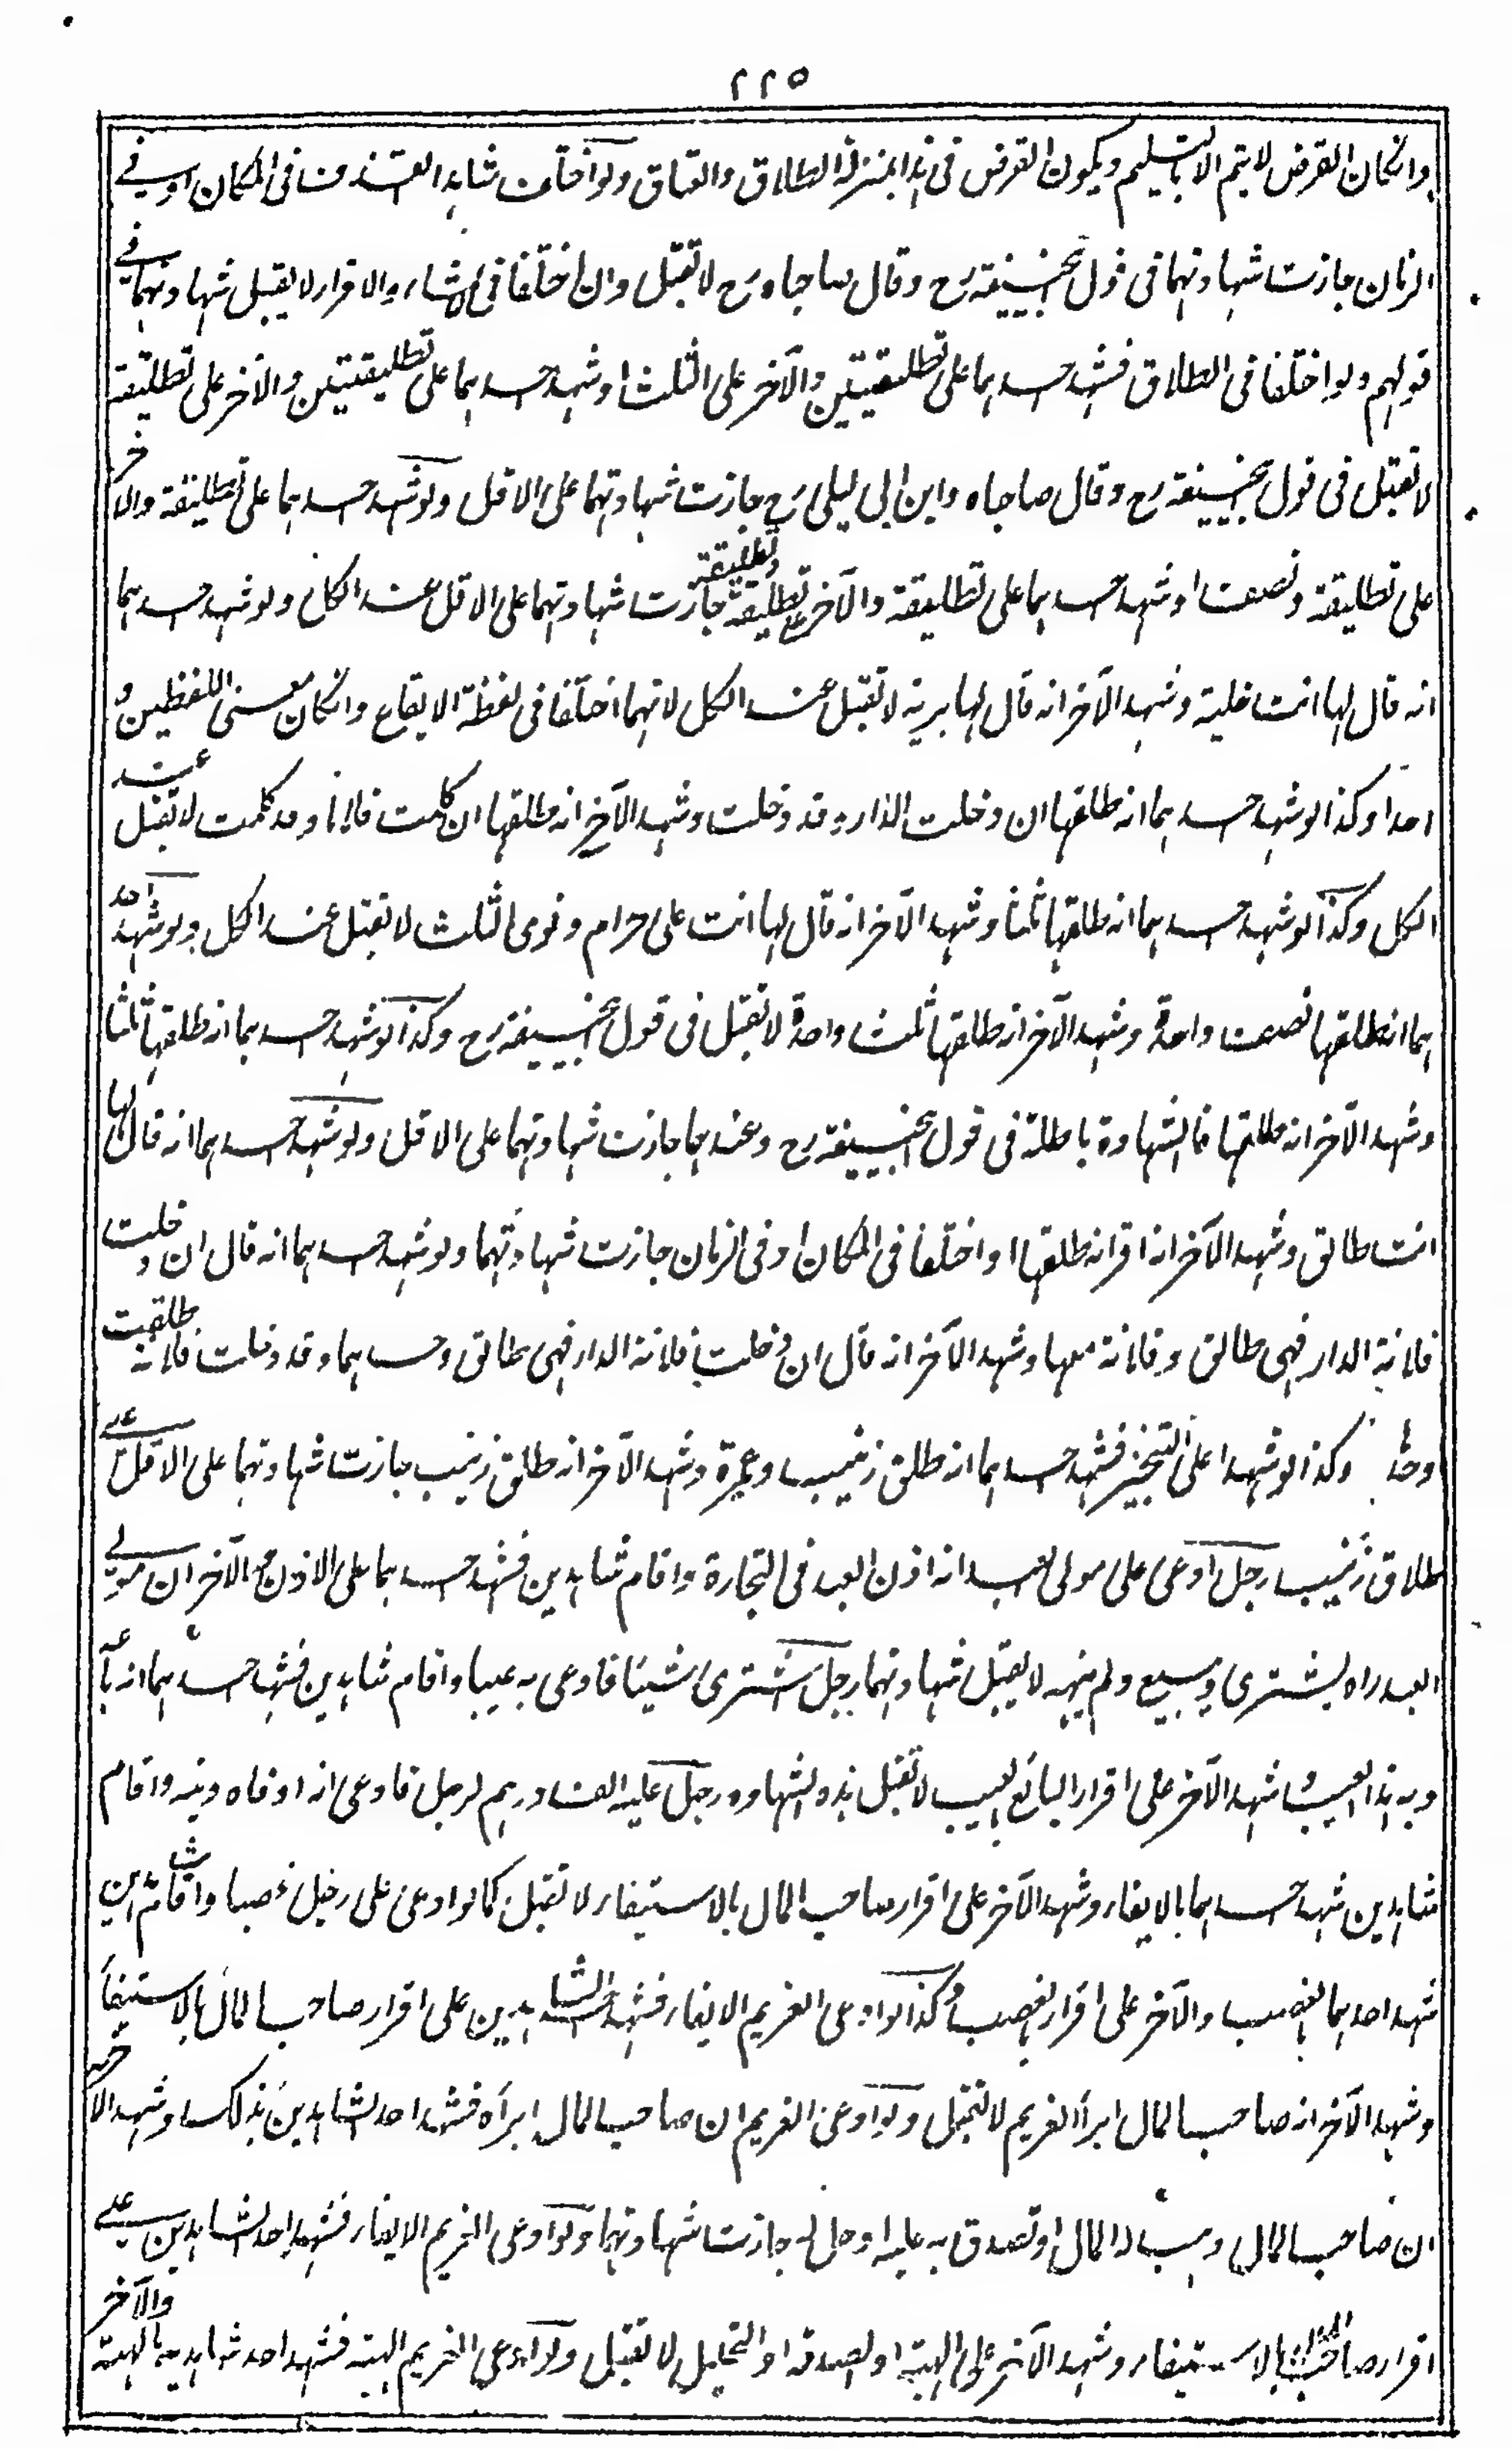 ٢٢٥
وانكان القرض لا يتم الا بالتسليم ويكون القرض فى هذا بمنزلة الطلاق والعتاق ولو اختلف شاهدا القذف فى المكان او فے
الزمان جازت شهادتهما فى قول ابحنيفة رح وقال صاحباه رح لا تقبل وان اختلفا فى الانشاء والاقرار لا يقبل شهادتهما فے
قولهم ولو اختلفا فى الطلاق فشهد احدهما على تطليقتين والآخر على الثلث او شهد احدهما على تطليقتين والآخر على تطليقة
لا تقبل فى قول ابحنيفة رح وقال صاحباه وابن ابى ليلى رح جازت شهادتهما على الاقل ولو شهد احدهما على تطليقة والآخر
على تطليقة ونصف او شهد احدهما على تطليقة والآخر على تطليقة وتطليقة جازت شهادتهما على الاقل عند الكل ولو شهد احدهما
انه قال لها انت خلية وشهد الآخر انه قال لها برية لا تقبل عند الكل لانهما اختلفا فى لفظة الايقاع وانكان معنى اللفظين و
احدا وكذا لو شهد احدهما انه طلقها ان دخلت الدار وقد دخلت وشهد الآخر انه طلقها ان كلمت فلانا وقد كلمت لا تقبل عند
الكل وكذا لو شهد احدهما انه طلقها ثلثا وشهد الآخر انه قال لها انت على حرام ونوى الثلث لا تقبل عند الكل ولو شهد احد
هما انه طلقها نصف واحدة وشهد الآخر انه طلقها ثلث واحدة لا تقبل فى قول ابحنيفة رح وكذا لو شهد احدهما انه طلقها ثلثا
وشهد الآخر انه طلقها فالشهادة باطلة فى قول ابحنيفة رح وعندهما جازت شهادتهما على الاقل ولو شهد احدهما انه قال لها
انت طالق وشهد الآخر انه اقر انه طلقها او اختلفا فى المكان او فى الزمان جازت شهادتهما ولو شهد احدهما انه قال ان دخلت
فلانة الدار فهى طالق وفلانة معها وشهد الآخر انه قال ان دخلت فلانة الدار فهى طالق وحدها وقد دخلت فلانة طلقت
وحدها وكذا لو شهدا على التنجيز فشهد احدهما انه طلق زينب وعمرة وشهد الآخر انه طلق زينب جازت شهادتهما على الاقل علے
طلاق زينب رجل ادعى على مولى العبد انه اذن العبد فى التجارة واقام شاهدين فشهد احدهما على الاذن والآخر ان مولے
العبد راه يشترى ويبيع ولم ينهه لا يقبل شهادتهما رجل اشترى شيئا فادعى به عيبا واقام شاهدين فشهد احدهما انه باعه
وبه هذا العيب وشهد الآخر على اقرار البائع بالعيب لا تقبل هذه الشهادة رجل عليه الف درهم لرجل فادعى انه اوفاه دينه واقام
شاهدين شهد احدهما بالايفاء وشهد الآخر على اقرار صاحب المال بالاستيفاء لا تقبل كما لو ادعى على رجل غصبا واقام شاهدين
شهد احدهما بالغصب والآخر على اقرار الغصب وكذا لو ادعى الغريم الايفاء فشهد احد الشاهدين على اقرار صاحب المال بالاستيفاء
وشهد الآخر انه صاحب المال ابرأ الغريم لا تقبل ولو ادعى الغريم ان صاحب المال ابرأه فشهد احد الشاهدين بذلك وشهد الآخر
ان صاحب المال وهب له المال او تصدق به عليه او حل له جازت شهادتهما ولو ادعى الغريم الايفاء فشهد احد الشاهدين علے
اقرار صاحب المال بالاستيفاء وشهد الآخر على الهبة او الصدقة او التحليل لا تقبل ولو ادعى الغريم الهبة فشهد احد شاهديه بالهبة والآخر